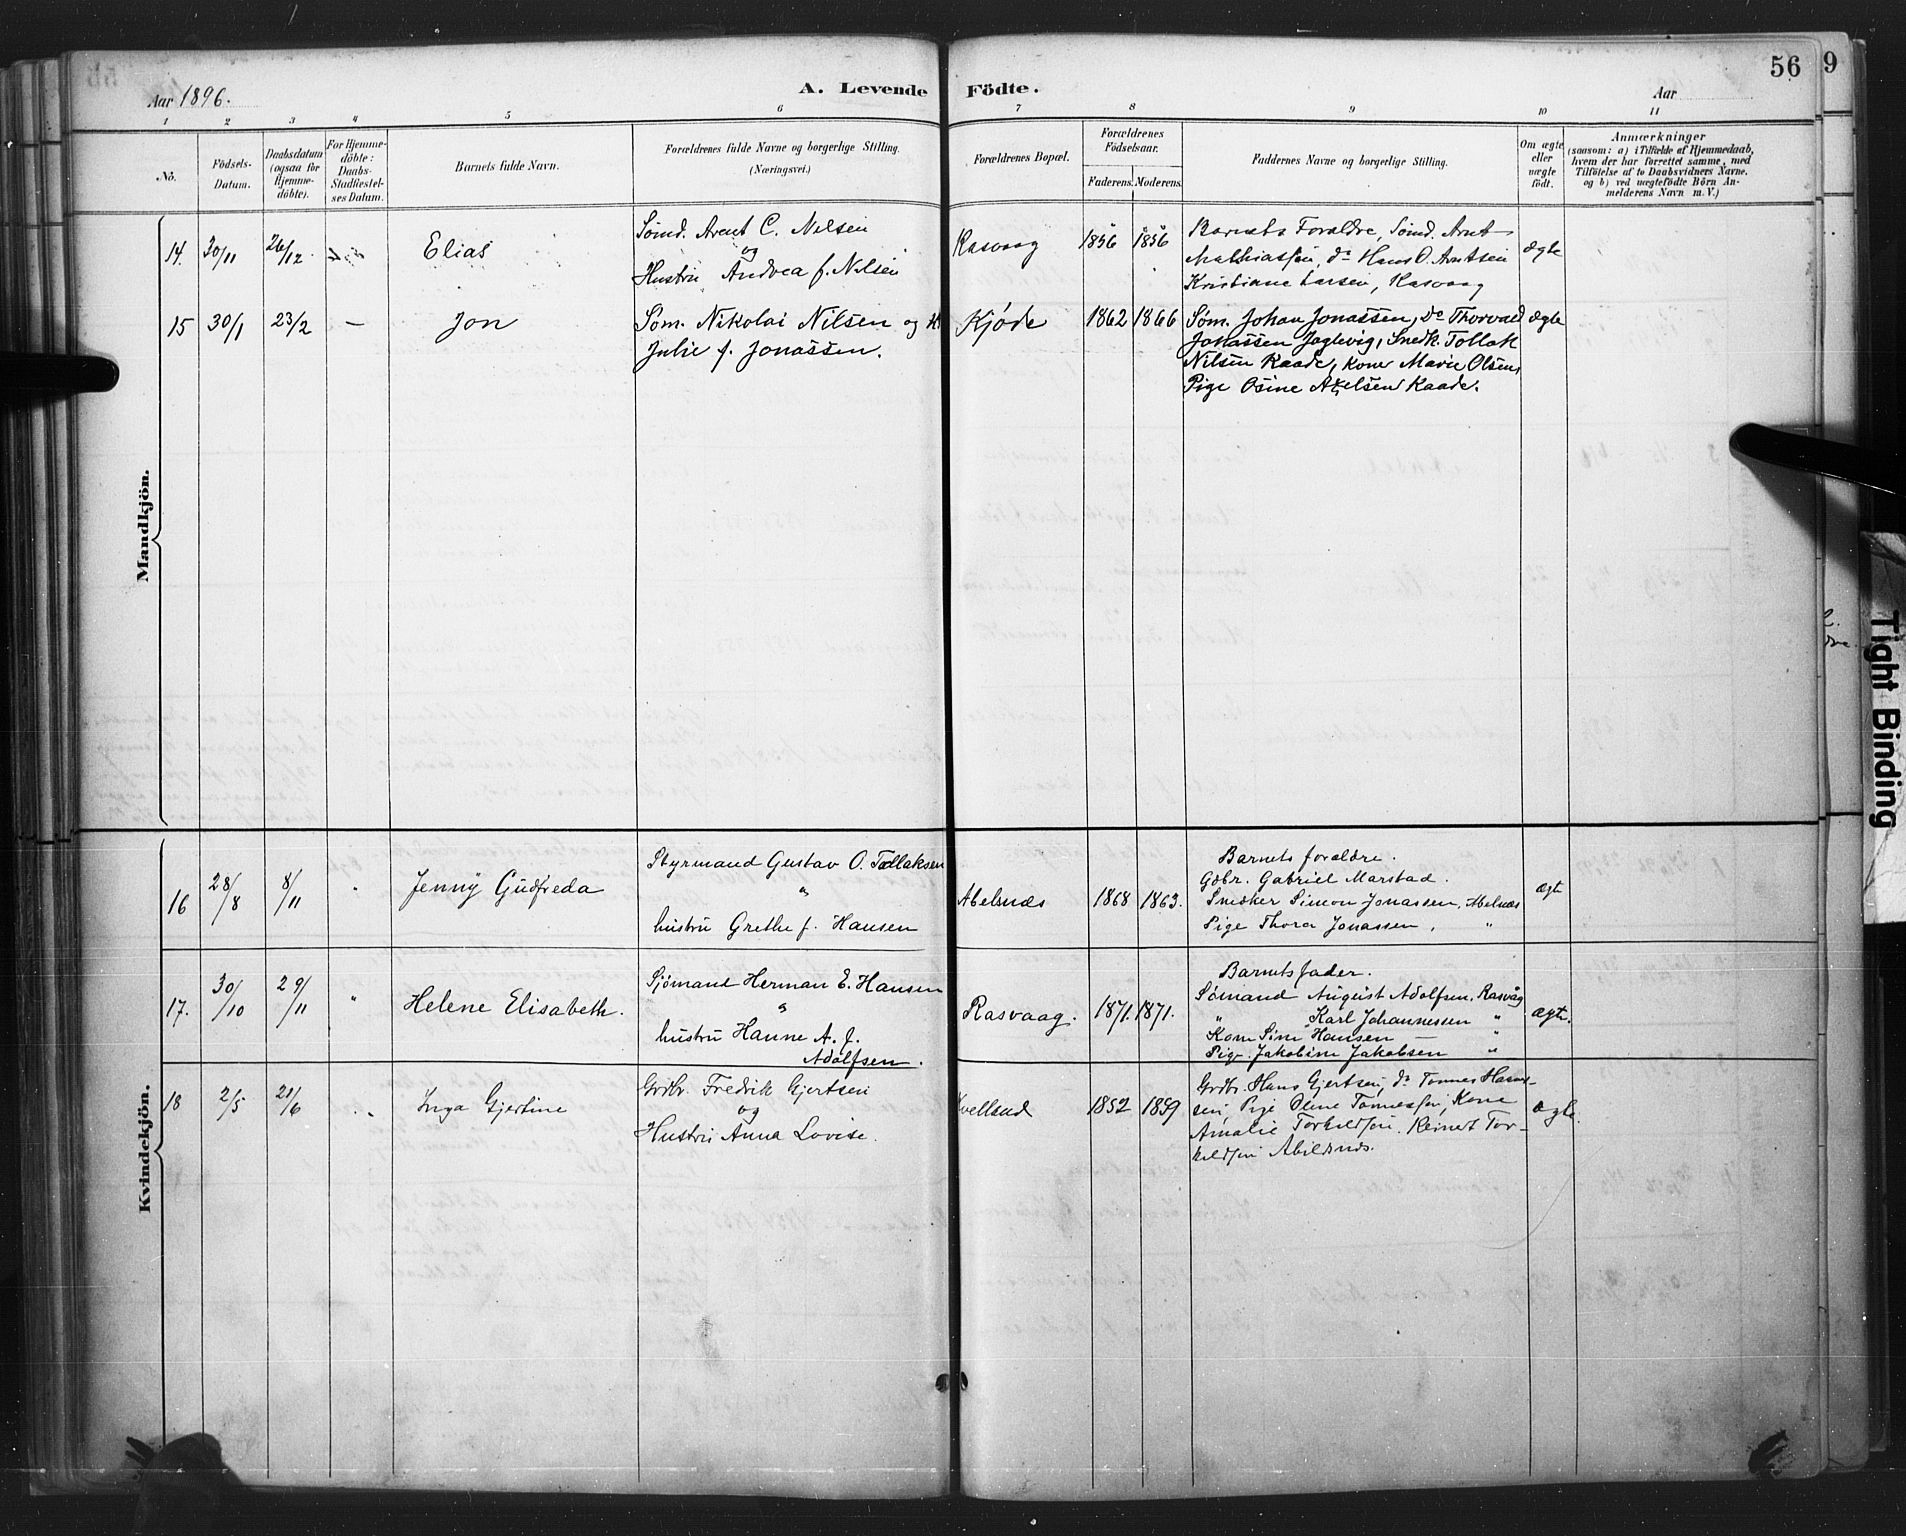 Aar 1896.
A. Levende Födte.
Aar
56
9
1 2 3 4 5 6 7 8 9 10 11
No.
Födsels-Datum.
Daabsdatum (ogsaa for Hjemme-döbte).
For Hjemme-döbte: Daabs-Stadfæstel-ses Datum.
Barnets fulde Navn.
Forældrenes fulde Navne og borgerlige Stilling.
(Næringsvei.)
Forældrenes Bopæl.
Forældrenes Födselsaar.
Faderens. Moderens.
Faddernes Navne og borgerlige Stilling.
Om ægte eller uægte født.
Anmærkninger
(saasom: a) i Tilfælde af Hjemmedaab,
hvem der har forrettet samme, med
Tilföielse af to Daabsvidners Navne,
og b) ved uægtefödte Börn An-
melderens Navn m. V.)
Mandkjön.
14. 30/11 26/12 Elias
Sømd. Arent C. Nilsen
og
Hustru Andrea f. Nilsen
Rasvaag 1856 1856
Barnets Foraldre, Sømd. Arnt
Mathiassen, do Hans O. Arntsen
Kristiane Larsen, Rasvaag
ægte
15 30/1 23/2 — Jon
Søm. Nikolai Nilsen og H
Julie f. Jonassen.
Kjøde 1862 1866
Søm. Johan Jonassen, Do Thorvald
Jonassen Joglevig, Snedk. Tollak
Nilsen Kaade, Kone Marie Olsen,
Pige Osine Akselsen Kaade.
ægte
Kvindekjön.
16 28/8 8/11 " Jenny Gudfreda
Styrmand Gustav O. Tollaksen
"
hustru Grethe f. Hansen
Abelsnæs 1868 1863.
Barnets foraldre.
Gdbr. Gabriel Marstad.
Snedker Simon Jonassen, Abelnæs
Pige Thora Jonassen, "
ægt
17. 30/10 29/11 " Helene Elisabeth.
Sjømand Herman E. Hansen
"
hustru Hanne A. f.
Adolfsen.
Rasvaag. 1871. 1871.
Barnets fader.
Sømand August Adolfsen, Rasvåg
" Karl Johannessen "
Kone Sine Hansen "
Pige Jakobine Jakobsen "
ægte.
18 2/5 21/6 " Inga Gjertine
Grdbr. Fredrik Gjertsen
og
Hustru Anna Lovise.
Kvellsud 1852 1859
Grdbr. Hans Gjertsen, do Tønnes Hans-
sen, Pige Oline Tønnessen, Kone
Amalie Torkildsen, Reinert Tor-
kildsen Abelsnæs.
ægte.
Tight Binding